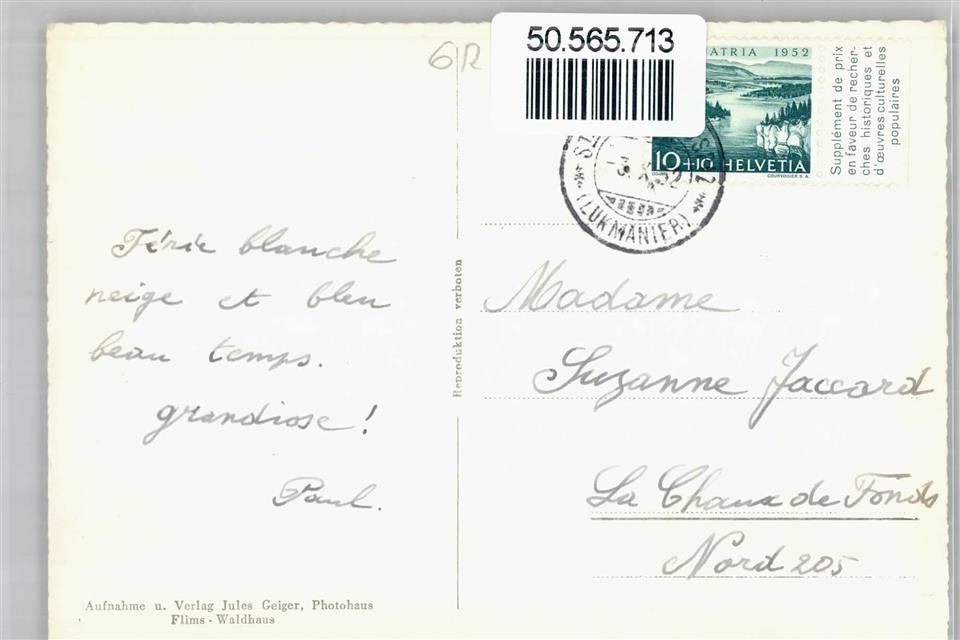 6R
50.565.713
ATRIA 1952
10+10 HELVETIA
COURVOISIER S.A.
Supplément de prix
en faveur de recher-
ches historiques et
d'œuvres culturelles
populaires
(LUKMANIER)
Férie blanche
neige et bleu
beau temps.
grandiose !
Paul.
Reproduktion verboten
Madame
Suzanne Jaccard
La Chaux de Fonds
Nord 205
Aufnahme u. Verlag Jules Geiger, Photohaus
Flims - Waldhaus